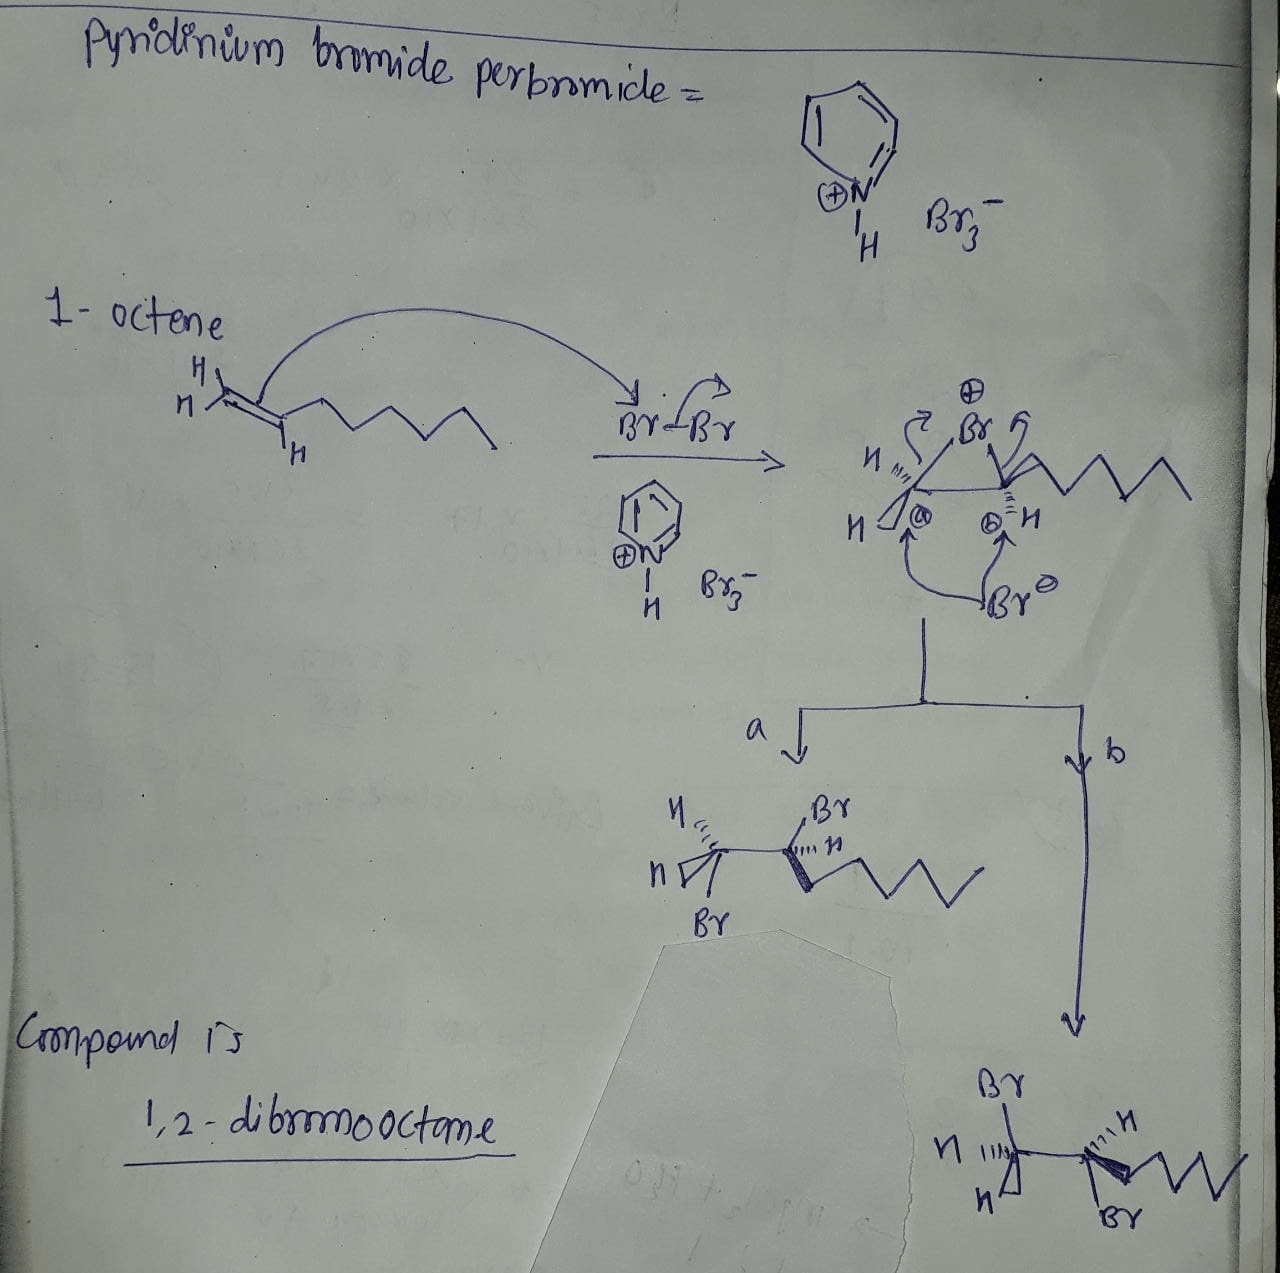 Pyridinium bromide perbromide =
⊕N
H
Br₃⁻
1- octene
H
H
H
Br-Br
⊕N
H
Br₃⁻
⊕
Br
H
H
ⓐ ⓑ H
Br⊖
a
b
H
Br
H
H
Br
Compound is
1,2-dibromooctane
Br
H
H
H
Br